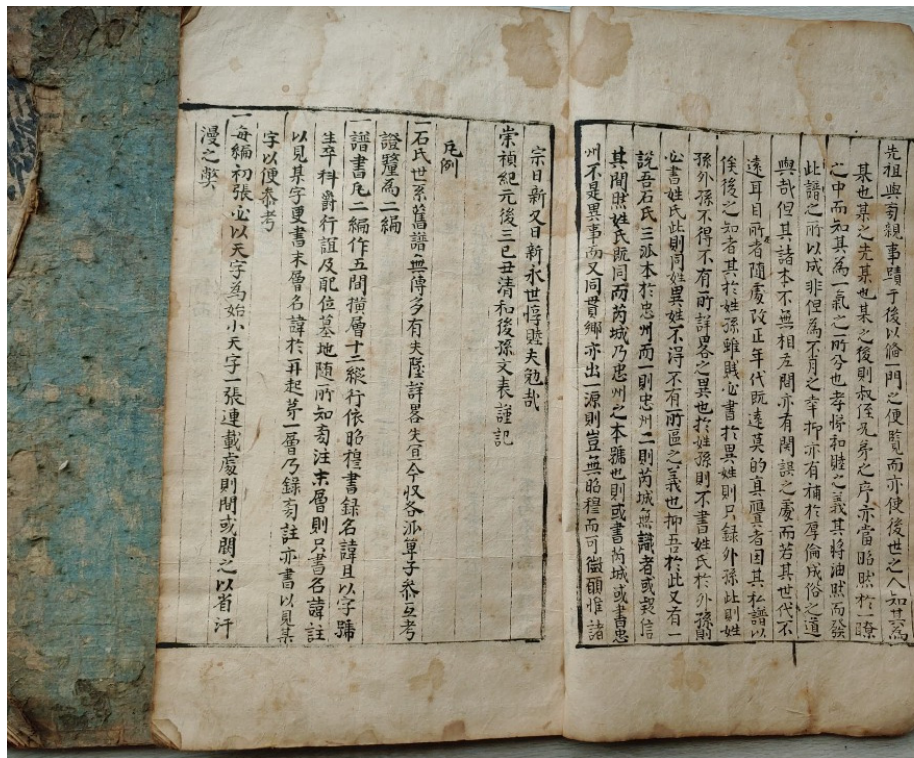 先祖與旁親事蹟于後以脩一門之便覽而亦使後世之人知其為
某也某之先某也某之後則叔侄兄弟之序亦當昭然於一瞭
之中而知其為一氣之所分也孝悌和睦之義其將油然而發
此譜之所以成非但為不肖之幸抑亦有補於厚倫成俗之道
與哉但其諸本不無相左間亦有闕誤之處而若其世代不
遠耳目所者隨處改正年代既遠莫的真贗者因其私譜以
俟後之知者其於姓孫雖賤必書於異姓則只錄外孫此則姓
孫外孫不得不有所詳畧之異也於姓孫則不書姓氏於外孫則
必書姓氏此則同姓異姓不得不有所區之義也抑吾於此又有一
說吾石氏三派本於忠州而一則忠州二則芮城無識者或疑信
其間然姓氏既同而芮城乃忠州之本號也則或書芮城或書忠
州不是異事而又同貫鄉亦出一源則豈無昭穆而可徵願惟諸
宗日新又日新永世惇睦夫勉哉
崇禎紀元後三己丑清和後孫文表謹記
凡例
一石氏世系舊譜無傳多有失墜詳畧失宜今収各派單子叅互考
證釐為二編
一譜書凡二編作五間横層十二縱行依昭穆書錄名諱且以字號
生卒科爵行誼及配位墓地隨所知旁注末層則只書名諱註
以見某字更書末層名諱於再起第一層乃録旁註亦書以見某
字以便叅考
一每編初張必以天字為始小天字一張連載處則間或闕之以省汗
漫之弊